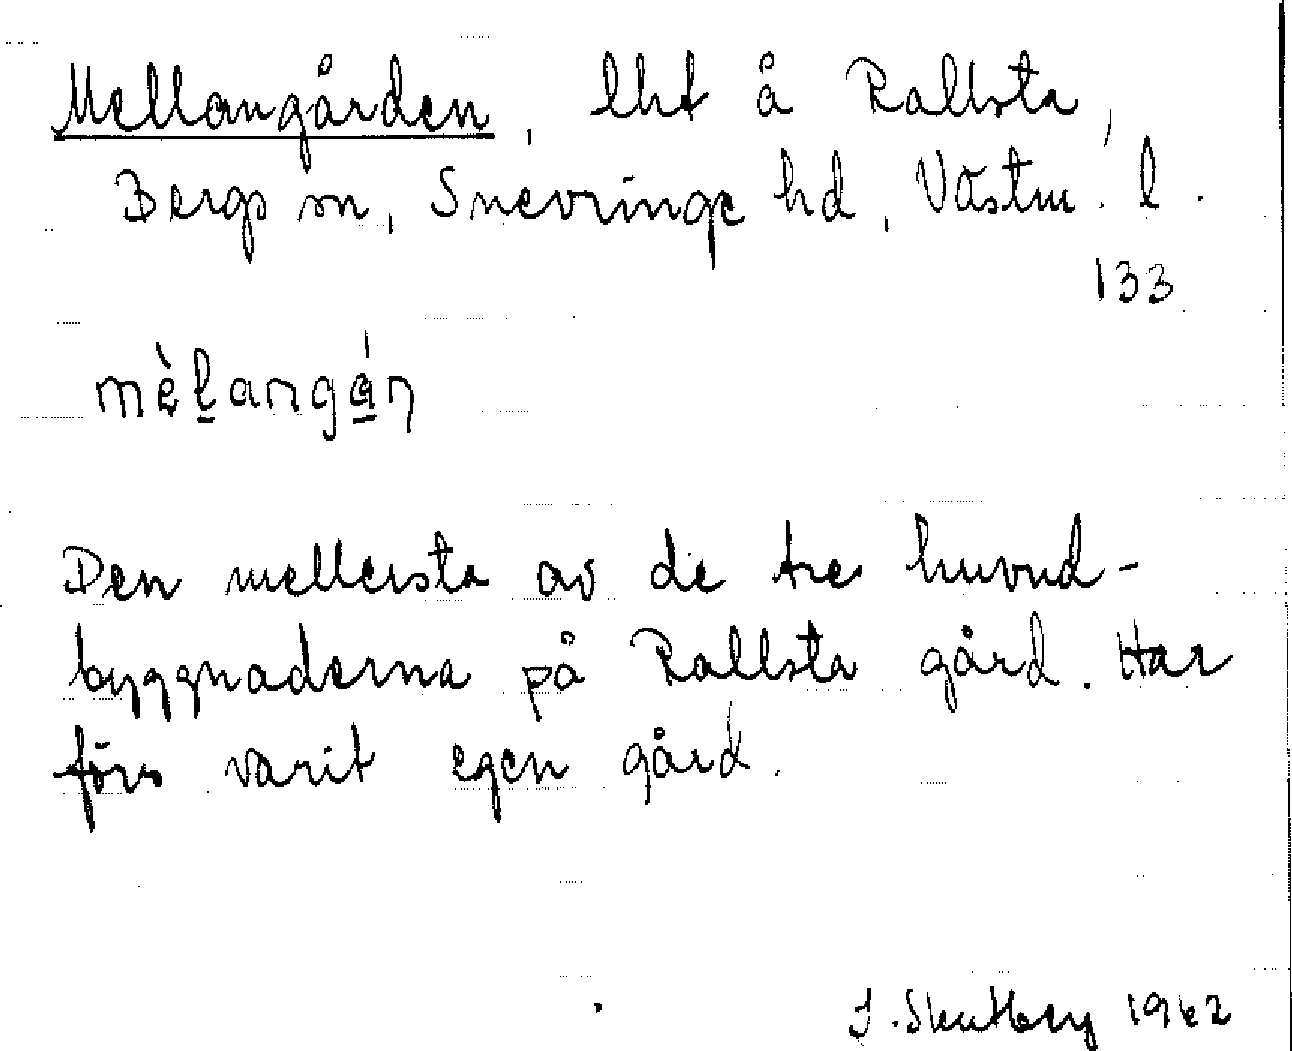 Mellangården, lht å Rallsta,
Bergs sn, Snevringe hd, Västm. l.
133
mèlangán
Den mellersta av de tre huvud-
byggnaderna på Rallsta gård. Har
förs varit egen gård.
J. Skutberg 1942